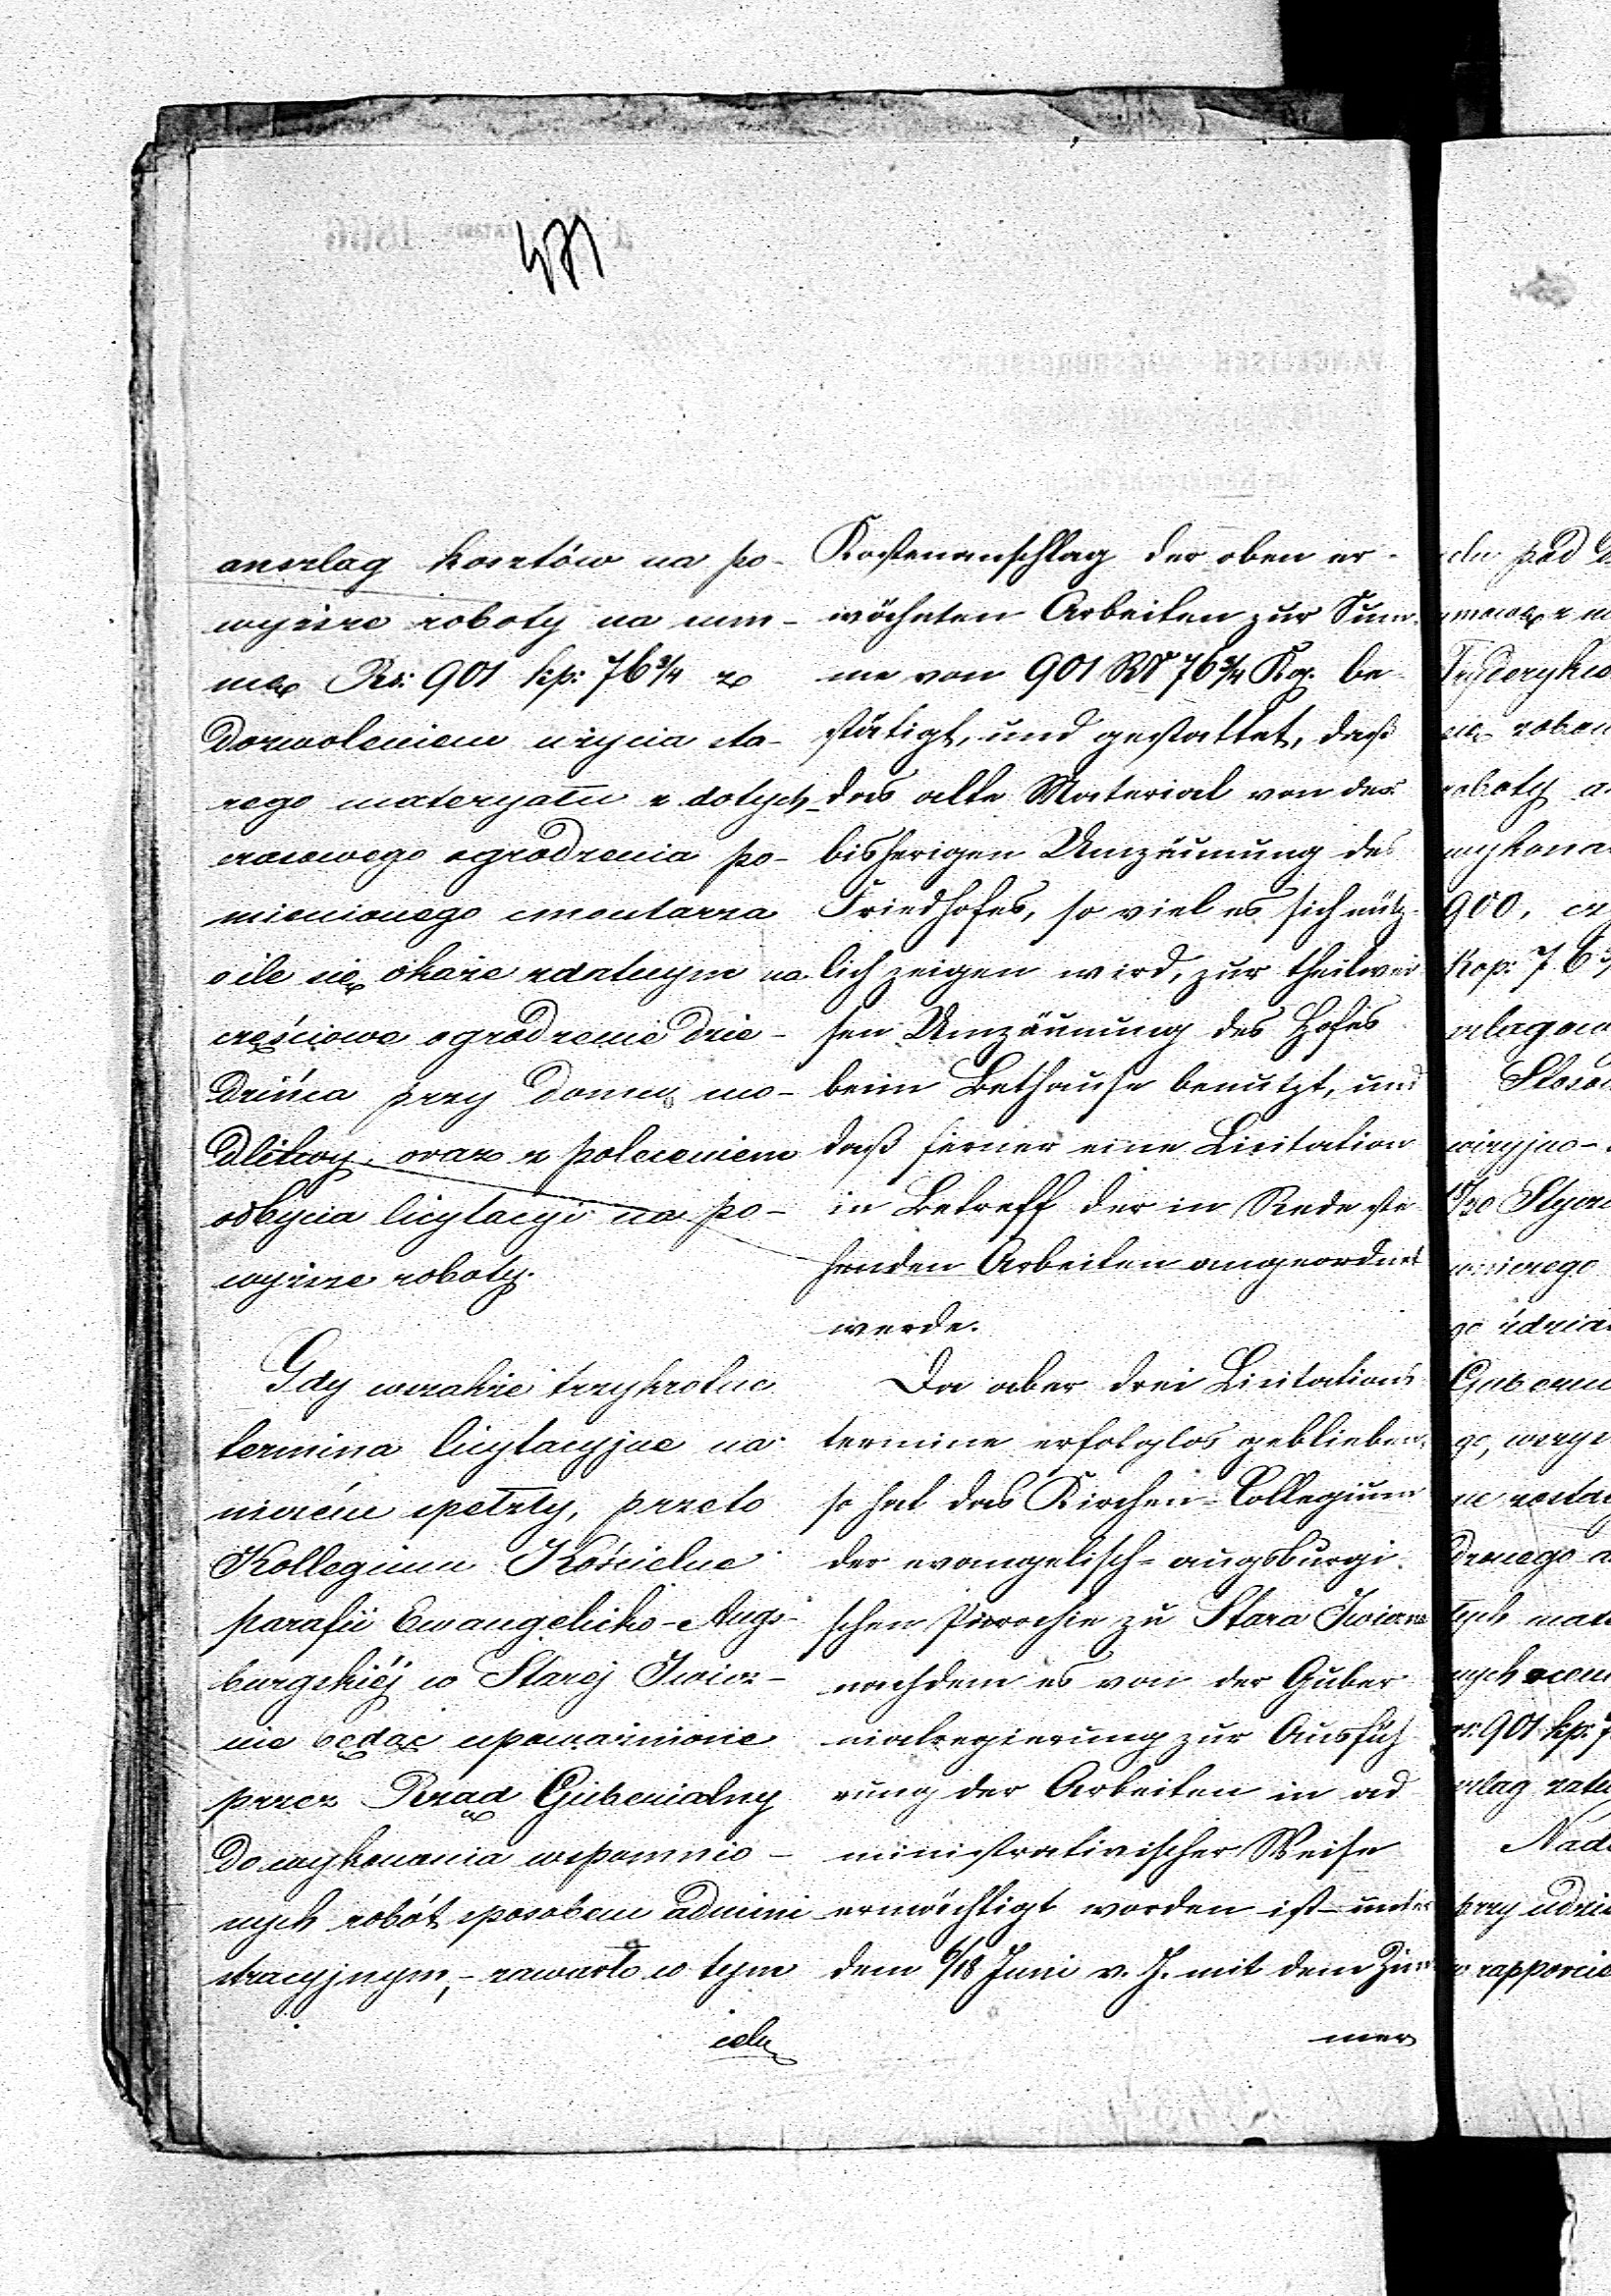 anszlag kosztów na po-
wyższe roboty na sum-
mę Rs: 901 kp: 76 3/4 z
dozwoleniem użycia sta-
rego materyału z dotych-
czasowego ogrodzenia po-
mienionego cmentarza
o ile się okaże zdatnym na
częściowe ogrodzenie dzie-
dzińca przy domu mo-
dlitwy, oraz z poleceniem
odbycia licytacyi na po-
wyższe roboty.
Gdy wszakże trzykrotne
termina licytacyjne na
niczém spełzły, przeto
Kollegium Kościelne
parafii Ewangelicko-Augs-
burgskiéj w Starej Iwicz-
nie będąc upoważnione
przez Rząd Gubernialny
do wykonania wspomnio-
nych robót sposobem admini
stracyjnym, - zawarło w tym
celu
Kostenanschlag der oben er-
wähnten Arbeiten zur Sum-
me von 901 RS 76 3/4 Kop. be-
stätigt, und gestattet, daß
das alte Material von der
bisherigen Umzäunung des
Friedhofes, so viel es sich nütz-
lich zeigen wird, zur theilwei
sen Umzäunung des Hofes
beim Bethause benutzt, und
daß ferner eine Licitation
in Betreff der in Rede ste
henden Arbeiten angeordnet
werde.
Da aber drei Licitations
termine erfolglos geblieben,
so hat das Kirchen-Collegium
der evangelisch-augsburgi-
schen Parochie zu Stara Iwiczna
nachdem es von der Guber
nialregierung zur Ausfüh
rung der Arbeiten in ad
ministrativischer Weise
ermächtigt worden ist - unter
dem 6/18 Juni v. J. mit dem Zim
mer
celu pod d
Fryderykie
roboty a
wykona
900, cz
Kop: 76 3/
szlagow
Stoso
18/30 Stycz
Gubern
go, wszys
drzonego a
tych mate
rs: 901 kp: 7
szlag zatw
Nad
przy udzia
w rapporcie